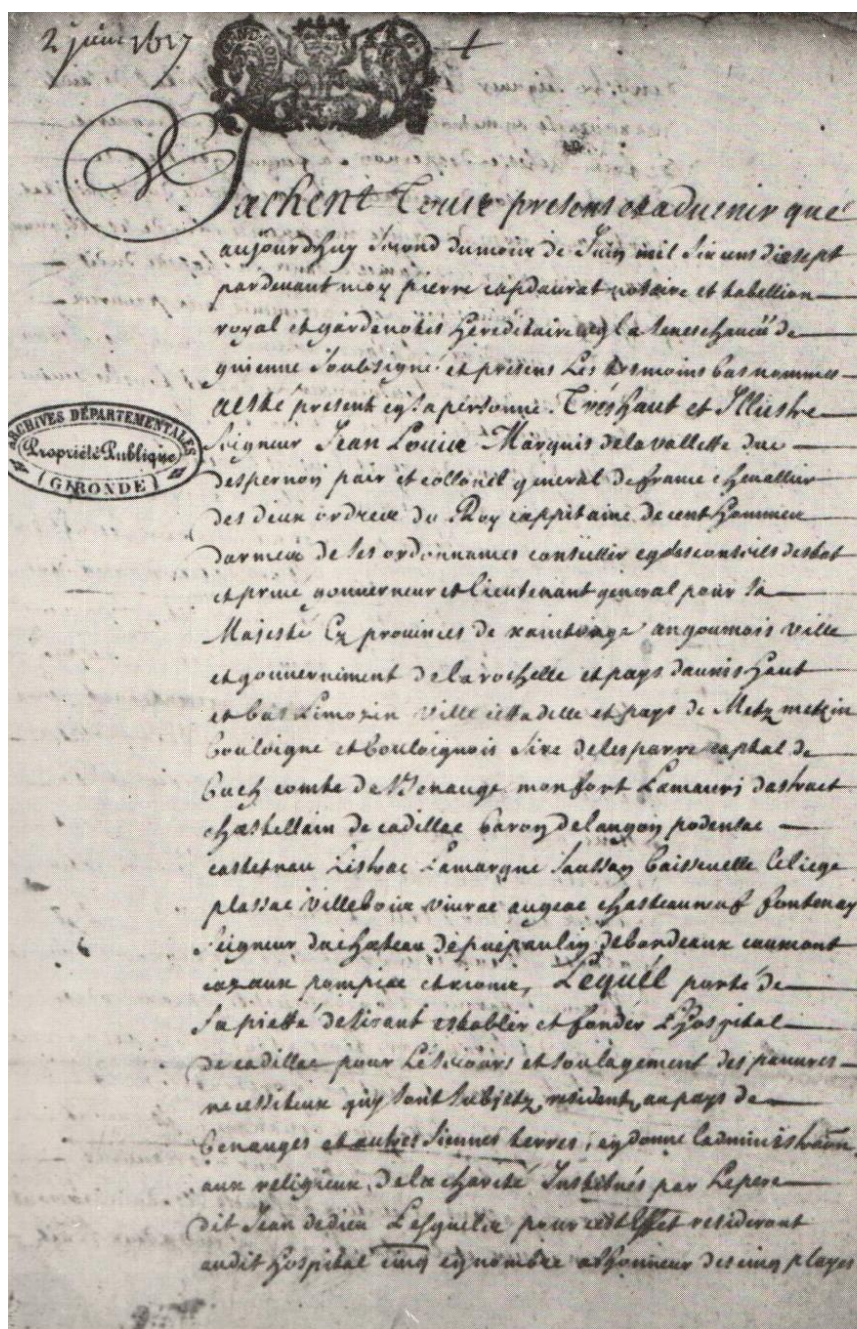 2 juin 1617
Sachent Tous presens et aduenir que
aujourdhuy second du mois de Juin mil six cens dix sept
pardevant moy pierre capdaurat notaire et tabellion
royal et gardenottes hereditaire en la seneschaucee de
guienne soubsigne et presens les tesmoins bas nommes
a esté present en sa personne Tres haut et Illustre
Seigneur Jean Louis Marquis de la vallette duc
despernon pair et collonel general de france chevallier
des deux ordres du Roy cappitaine de cent hommes
darmes de ses ordonnances conseiller en ses conseils destat
et privé gouuerneur et lieutenant general pour sa
Majesté Ez provinces de xaintonge angoumois ville
et gouuernement de la rochelle et pays daunis haut
et bas Limozin ville cittadelle et pays de Metz metzin
bouloigne et bouloignois sire de lesparre captal de
buch comte de Benauge monfort Lamauri dastarac
chastellain de cadillac baron de langon podensac
castelnau Listrac Lamarque
plassac villebois vivrac augeac chasteauneuf fontenay
Seigneur du chateau de puepaulin de bordeaux caumont
cazaux pompiac Lequel porté de
sa pietté desirant establir et fonder L'hospital
de cadillac pour le secours et soulagement des pauvres
necessiteux quy sont subjetz residentz au pays de
benauges et autres siennes terres, en donne ladministraōn
aux religieux de la charité Institués par Lepere
dit Jean de dieu Lesquels pour cest effet resideront
audit hospital cinq en nombre a lhonneur des cinq playes
ARCHIVES DÉPARTEMENTALES
Propriété Publique
(GIRONDE)